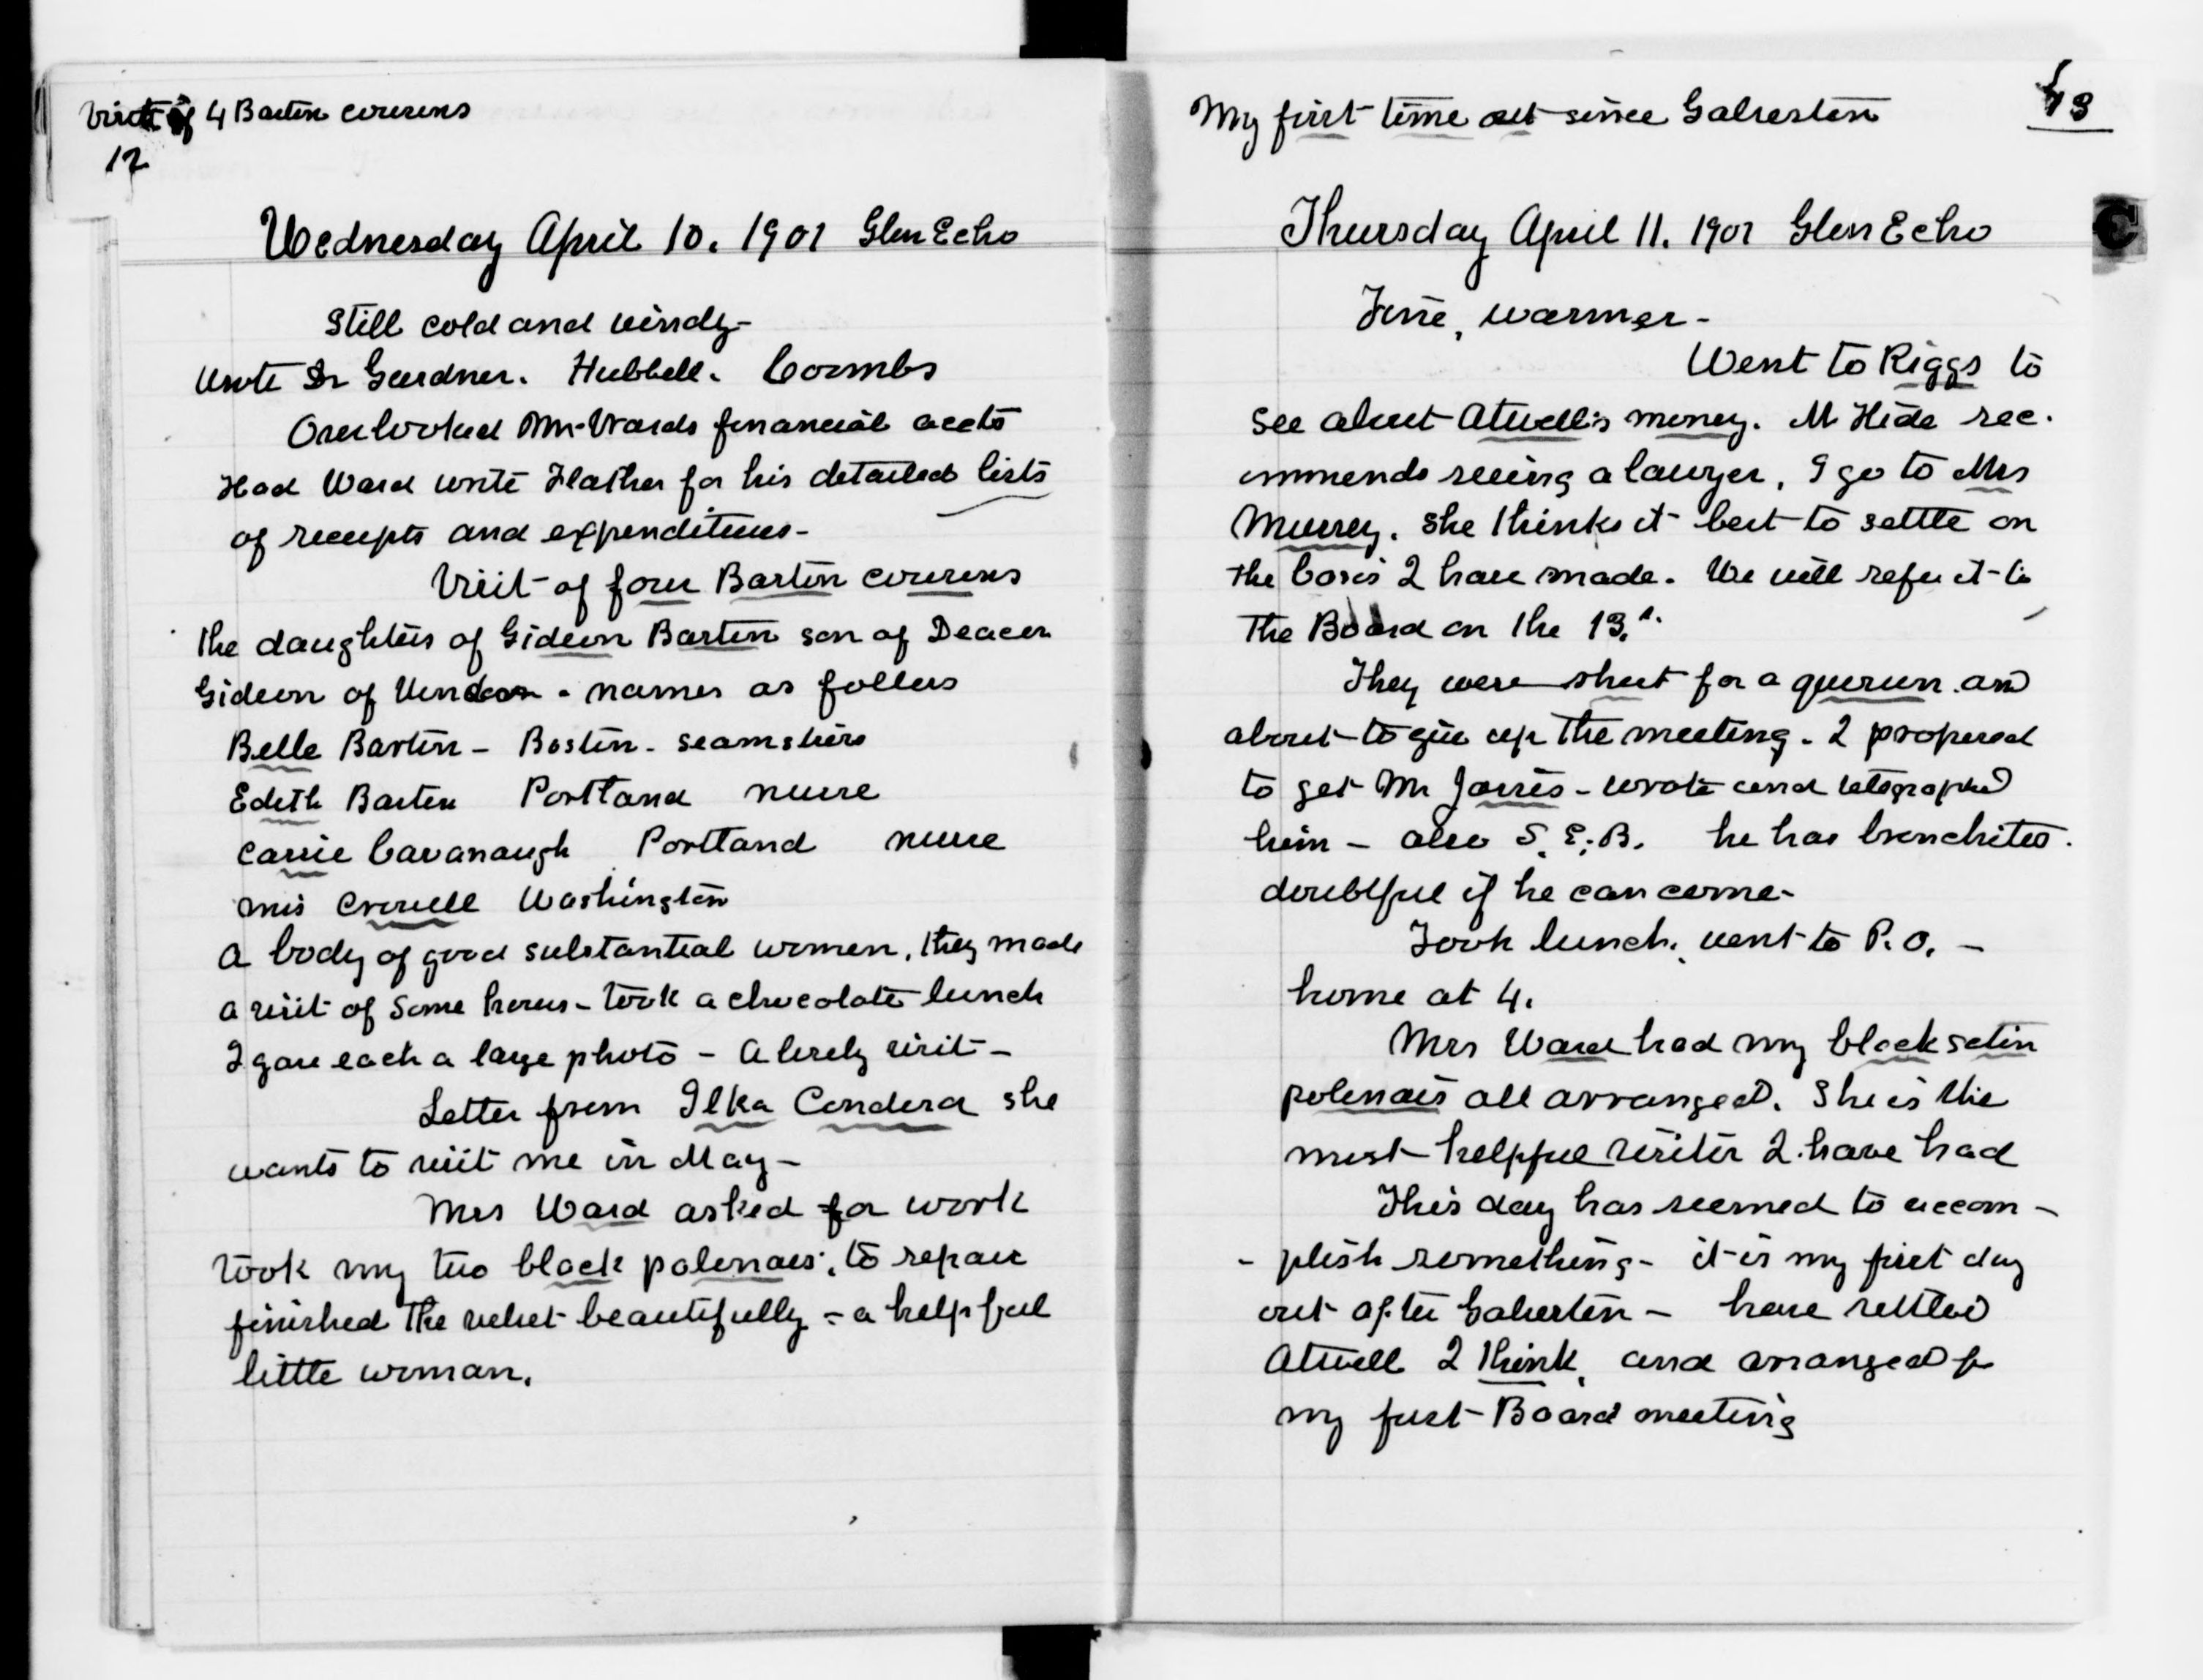 Visit of 4 Barton cousins
12
Wednesday April 10. 1901 Glen Echo
Still cold and windy-
Wrote Dr Gardner. Hubbell. Coombs
Overlooked Mr Wards financial accts
Had Ward write Flather for his detailed lists
of receipts and expenditures-
Visit of four Barton cousins
the daughters of Gideon Barton son of Deacon
Gideon of - names as follows
Belle Barton - Boston - seamstress
Edith Barton Portland nurse
Carrie Cavanaugh Portland nurse
mis Washington
A body of good substantial women, they made
a visit of some hours - took a chocolate lunch
I gave each a large photo - A lovely visit -
Letter from Ilka Condera she
wants to visit me in May -
Mrs Ward asked for work
took my two black polonais, to repair
finished the velvet beautifully - a helpful
little woman.
My first time out since Galveston
13
Thursday April 11. 1901 Glen Echo
Fine, warmer -
Went to Riggs to
see about Atwell's money. M Hide rec.
ommends seeing a lawyer, I go to Mrs
Murrey. She thinks it best to settle on
the basis I have made. We will refer it to
the Board on the 13.
They were short for a quorum and
about to give up the meeting. I proposed
to get Mr Jarvis - wrote and telegraphed
him - also S. E. B. he has bronchites.
doubtful if he can come -
Took lunch, went to P.O. -
home at 4.
Mrs Ward had my black satin
polonais all arranged. She is the
most helpful visitor I have had
This day has seemed to accom -
- plish something - it is my first day
out after Galveston - have settled
Atwell I think, and arranged for
my first Board meeting